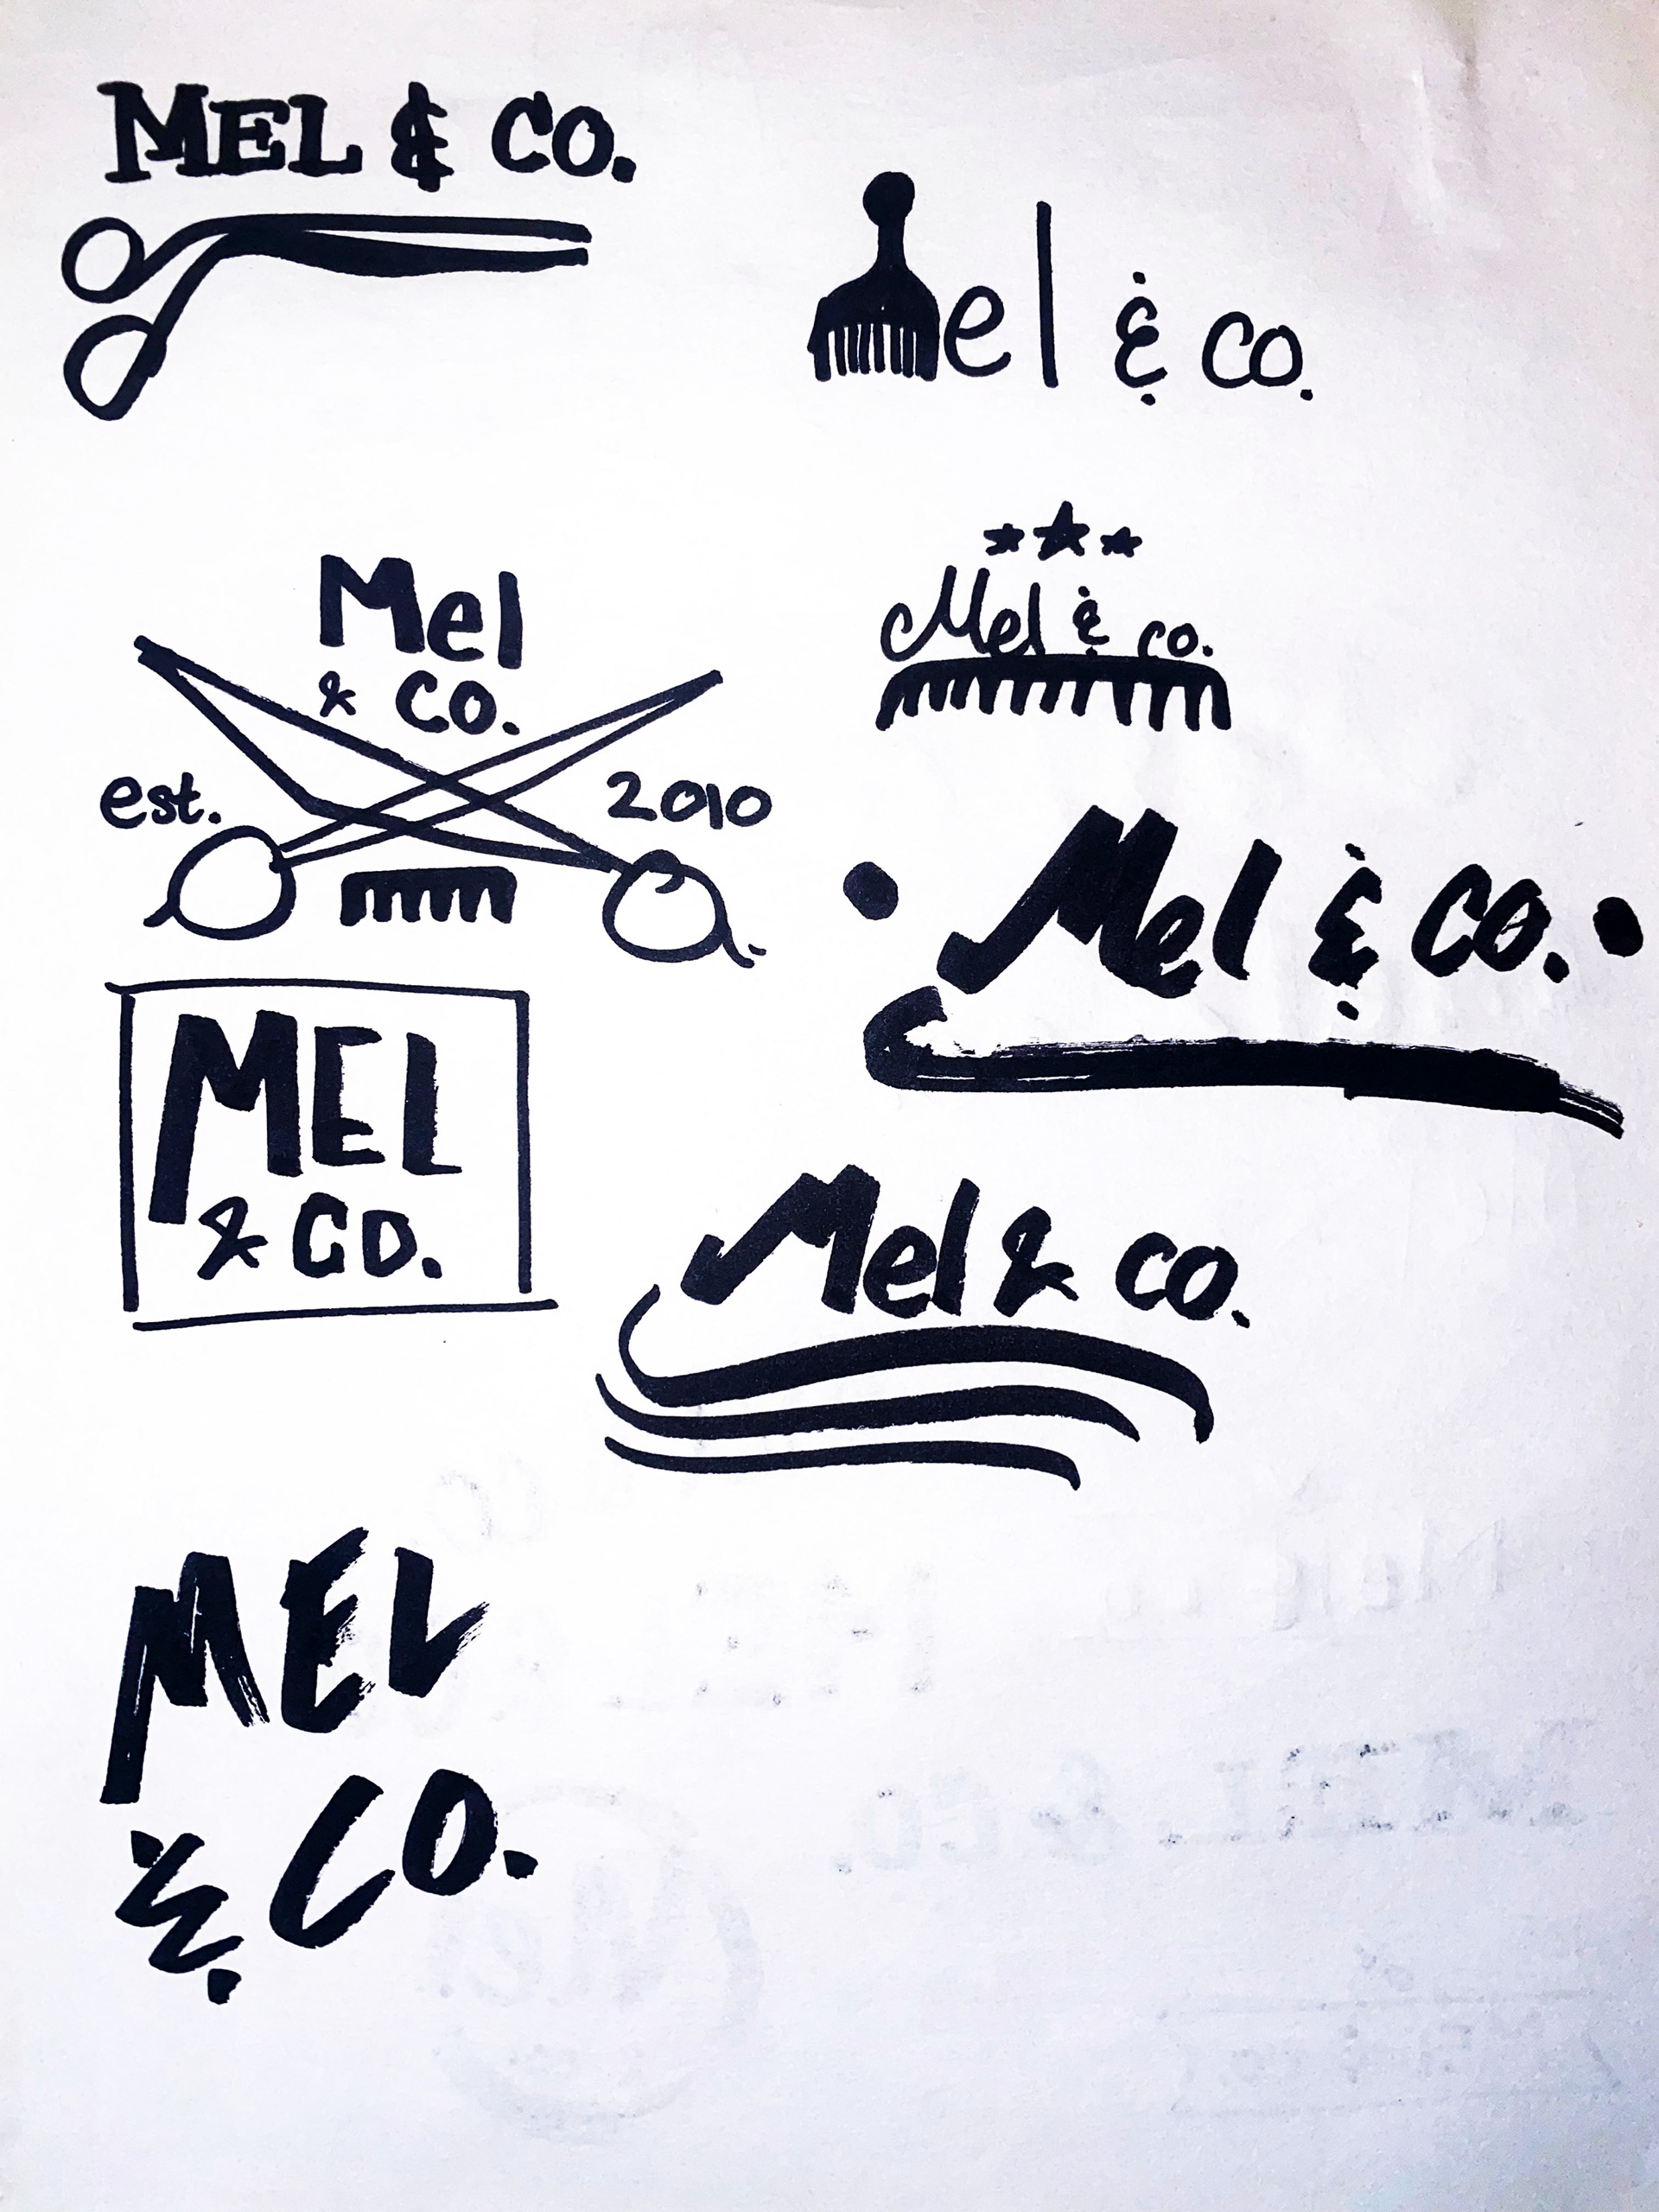 MEL & CO.
Mel & co.
Mel
& CO.
est. 2010
Mel & co.
Mel & CO.
MEL
& CO.
Mel & co.
MEL
& CO.
MEL & CO.